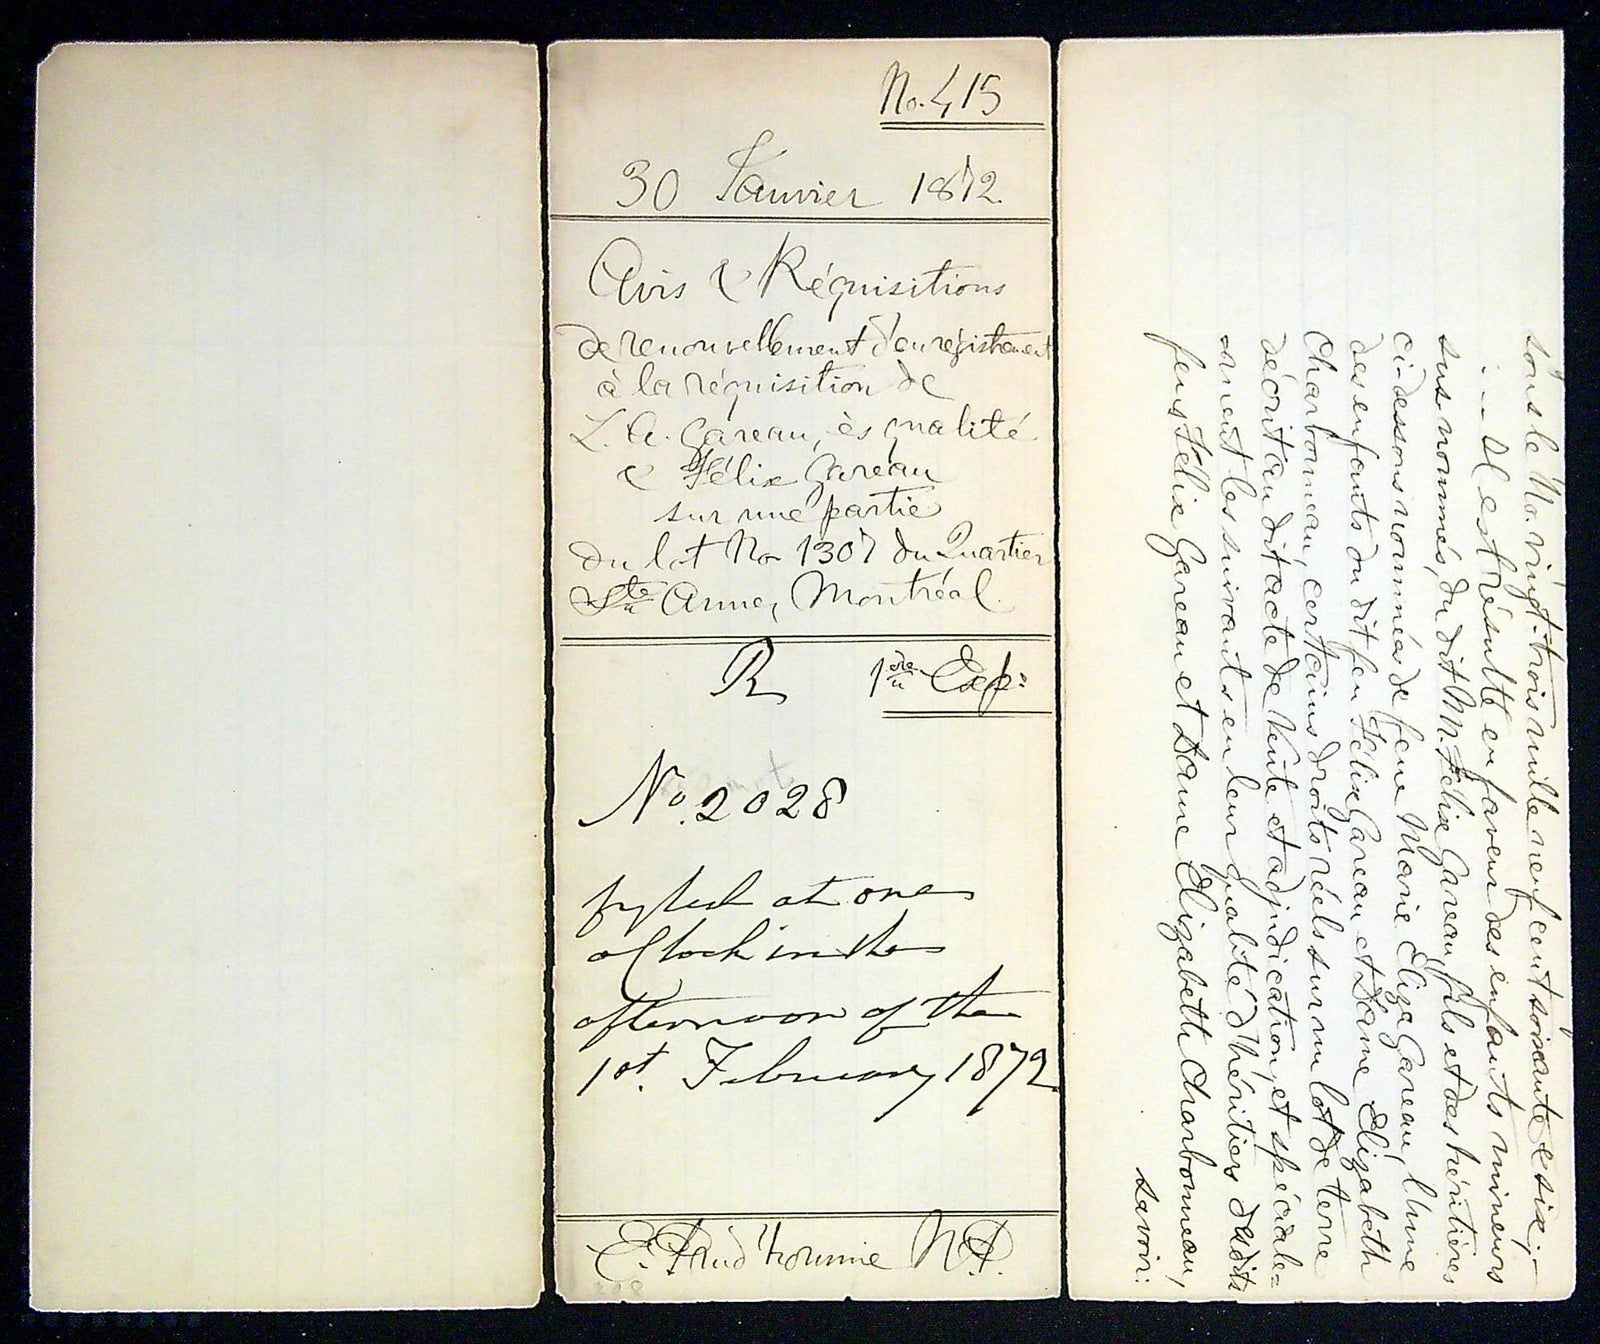 No. 415
30 Janvier 1872.
Avis & Réquisitions
de renouvellement d'enrégistrement
à la réquisition de
L. A. Gareau, ès qualité
& Félix Gareau
sur une partie
du lot No 1307 du Quartier
Ste Anne, Montréal.
R 1ère Exp:
No. 2028
fyled at one
o Clock in the
afternoon of the
1st. February 1872
E. Prud'homme N.P.
sous le No. vingt-trois mille neuf cent soixante e six;-
Il est résulté en faveur des enfants mineurs
sus nommés, du dit M. Félix Gareau, fils et des héritières
ci-dessous nommées de feue Marie Eliza Gareau, l'une
des enfants du dit feu Félix Gareau et Dame Elizabeth
Charbonneau, certains droits réels sur un lot de terre
décrit au dit acte de Vente et adjudication, et spéciale=
ment les suivants en leur qualité d'héritiers desdits
feus Félix Gareau et Dame Elizabeth Charbonneau,
savoir: